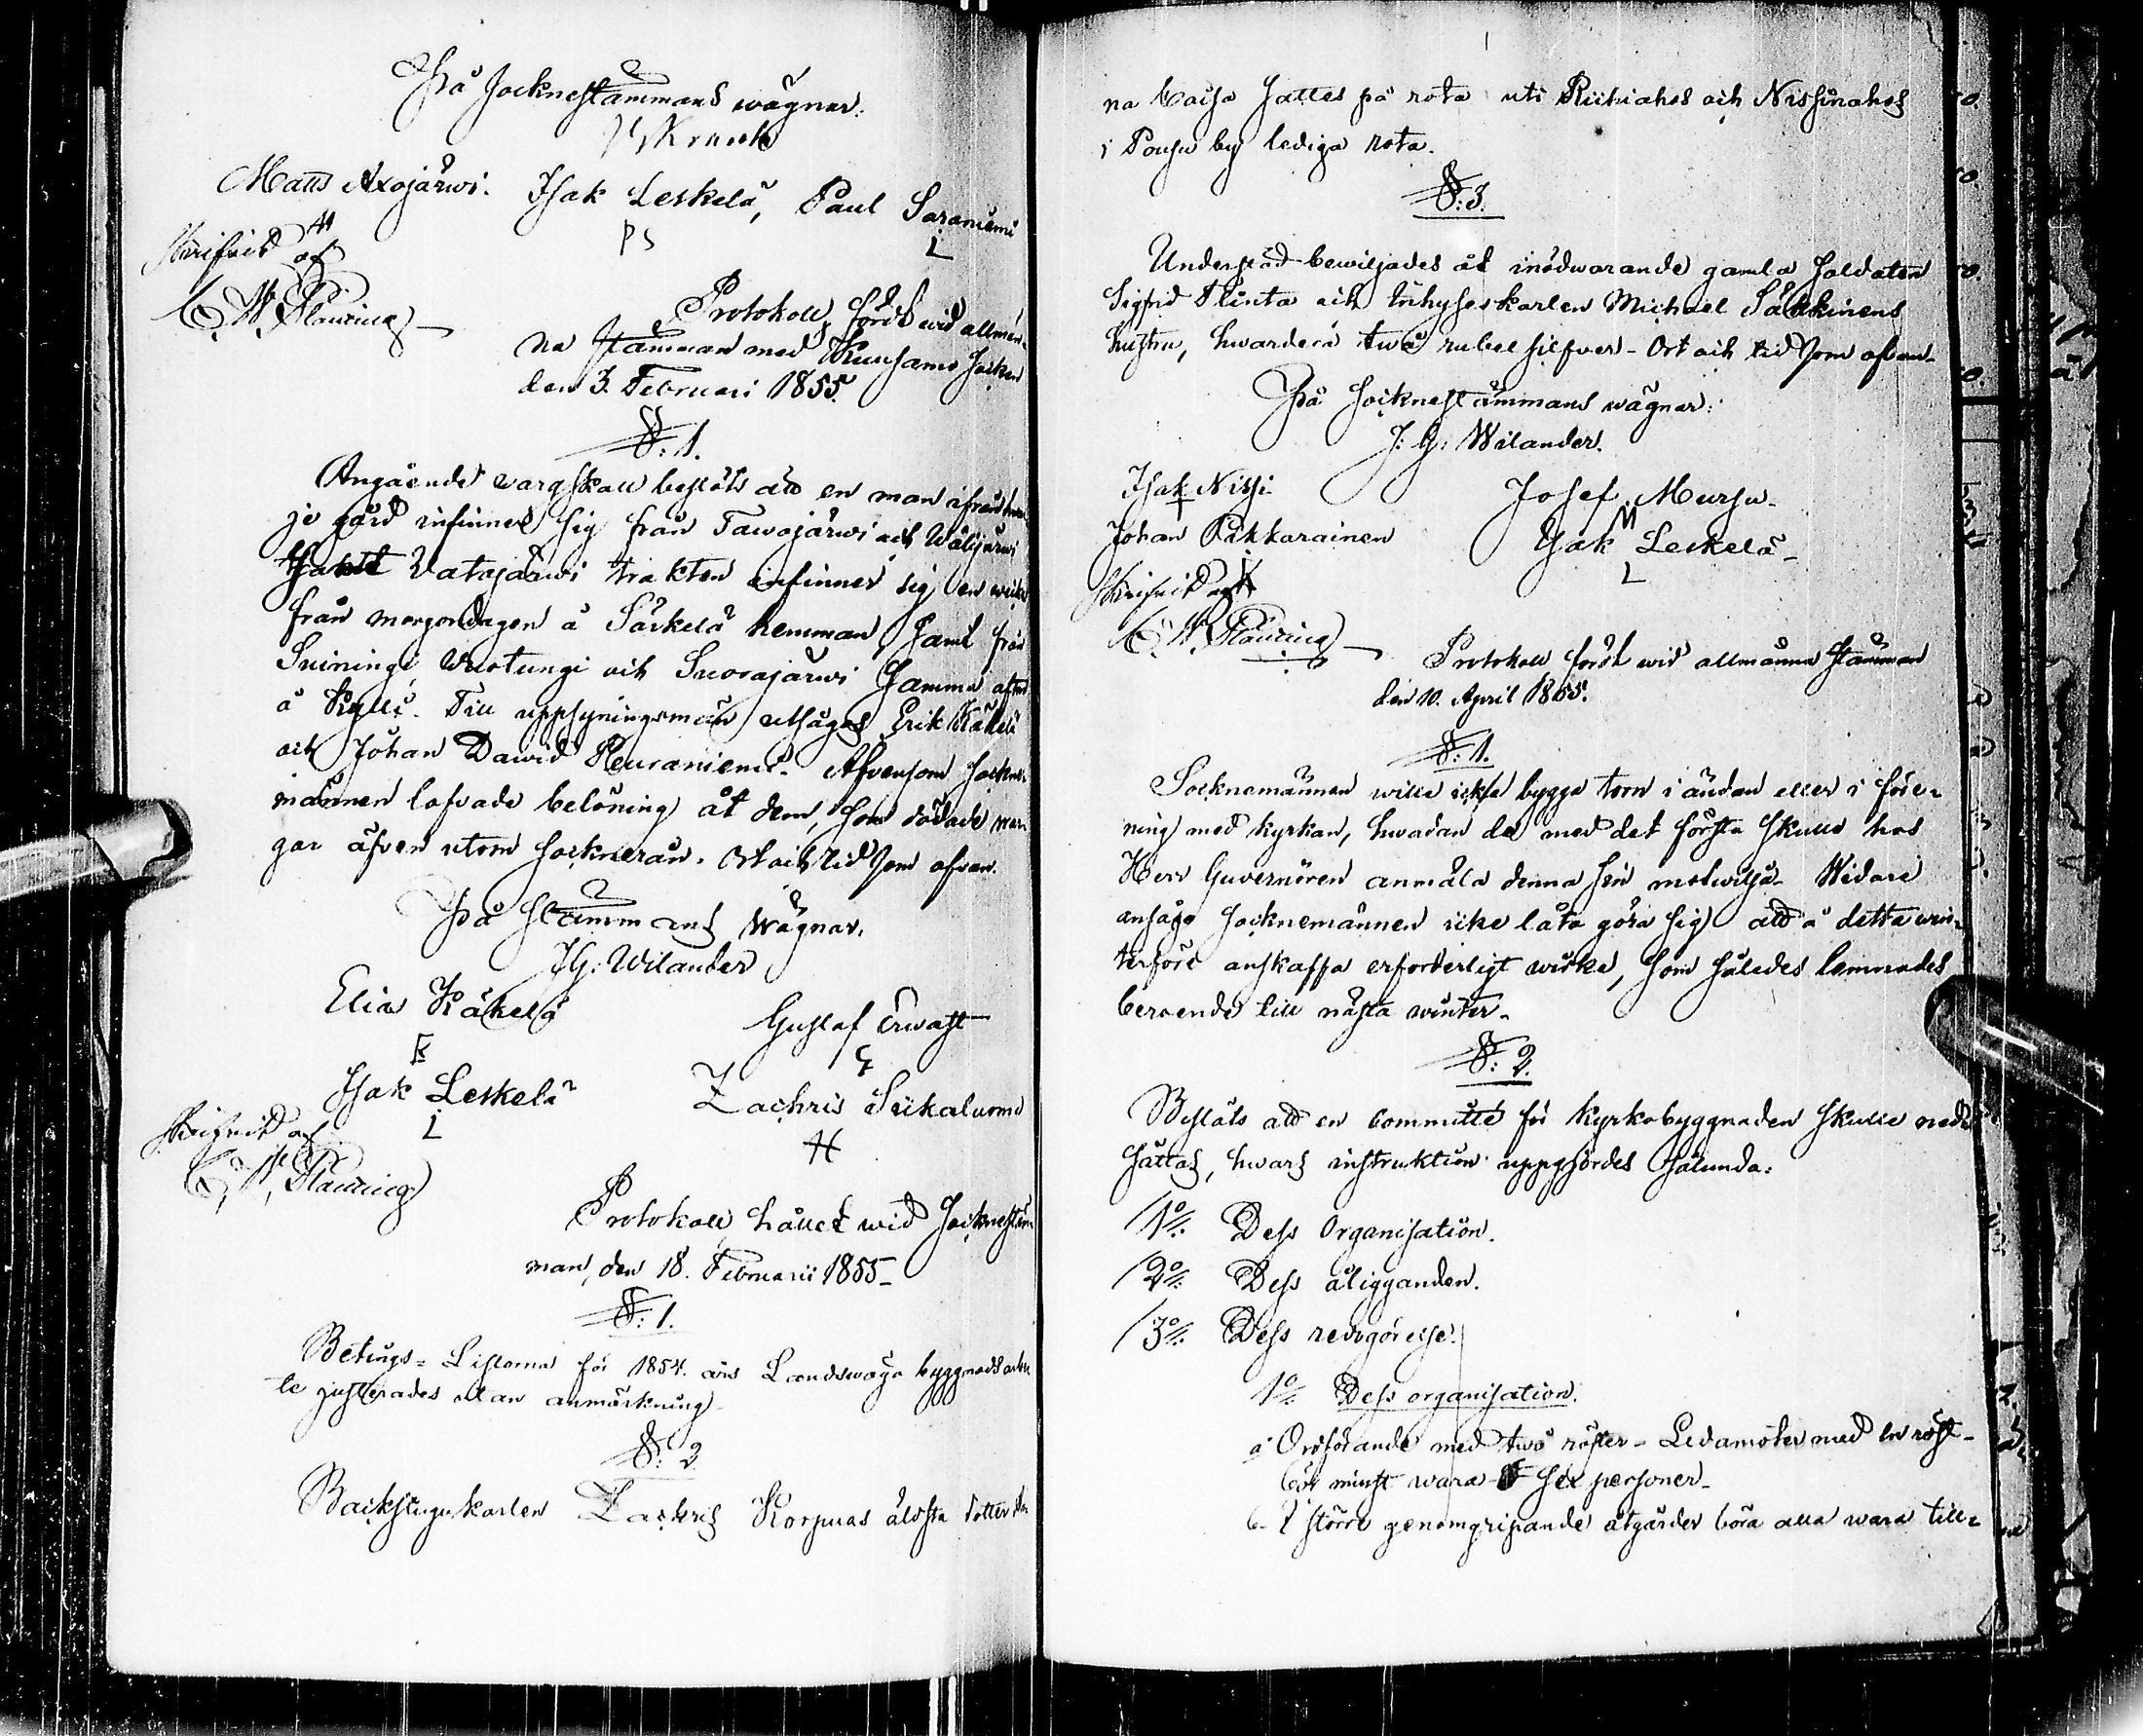 På Socknestämmans wägnar:
Matts Axojärwi. Isak Leskelä, Paul Saraniemi
M PS L
Skrifvit af
C. W. Planting
Protokoll, fördt wid allmän-
na Stämman med Kuusamo Socken
den 3. Februari 1855.
§: 1.
Angående vargskall beslöts att en man ifrån hwar-
je gård infinner sig från Tawajärwi och Wälijärwi
Samt Vatajärwi trakten infinner sig en wecka
från morgondagen å Särkelä hemman Samt från
Suiningi, Wuotungi och Suorajärwi Samma afton
å Kylli. Till uppsyningsmän utsågos Erik Käkelä
och Johan Dawid Heiraniemi. Äfvensom Sockne-
männen lofvade belöning åt dem, som dödade var-
gar äfven utom Socknerån. Ort och tid Som ofvan.
På Stämmans Wägnar.
J G: Wilander
Elias Käkelä Gustaf Erwast
Isak Leskelä Zachris Siikaluoma
L H
Skrifvit af
C. W. Planting
Protokoll, hållet wid Socknestäm-
man, den 18. Februarii 1855-
§: 1.
Betings-Listorna för 1854. års Landswägs byggnadsarbe-
te justerades utan anmärkning.
§: 2
Backstugukarlen Zachris Korpuas äldsta dotter
na Caisa Sattes på rota uti Riekiahos och Nissinahos
i Pousu by lediga rota.
§: 3.
Understöd bewiljades åt inödwarande gamla Soldaten
Sigfrid Flinta och inhyseskarlen Michael Säkkinens
hustru, hwardera twå rubel silfver- Ort och tid Som ofvan-
På Socknestämmans wägnar:
J: G: Wilander.
Isak Nissi Josef Mursu-
Johan Pakkarainen Isak Leskelä-
L
Skrifvit af
C. W. Planting
Protokoll fördt wid allmänna Stämman
den 10. April 1855.
§: 1.
Socknemännen wille icke bygga torn i ändan eller i före-
ning med kyrkan, hwadan de med det första Skulle hos
Herr Guvernören anmäla denna sin motwilja- Widare
ansågo Socknemännen icke låta göra sig att å detta win-
terföre anskaffa erforderligt wirke, som således lemnades
beroende till nästa winter-
§: 2.
Beslöts att en Committé för kyrkobyggnaden Skulle ned-
sättas, hwars instruktion uppgjordes sålunda:
1o/. Dess Organisation.
2o/. Dess åligganden.
3o/. Dess redogörelse.
1o/. Dess organisation.
a Ordförande med twå röster- Ledamöter med en röst-
bör minst wara sex personer-
b- I större genomgripande åtgärder böra alla wara till-